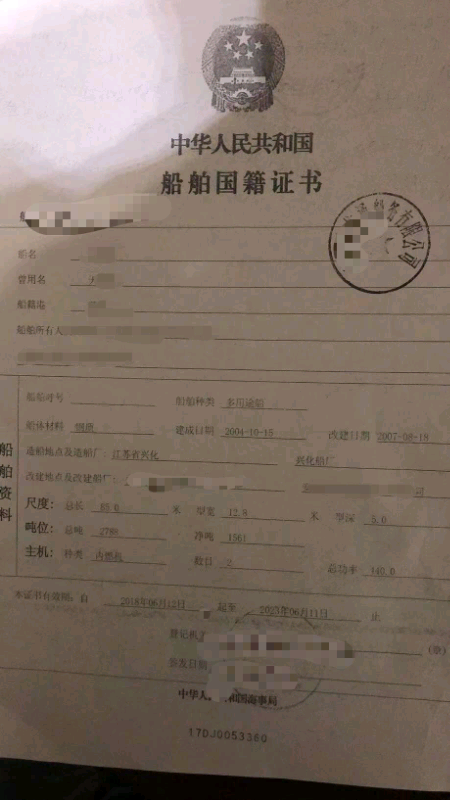 中华人民共和国
船舶国籍证书
船名
曾用名
船籍港
船舶所有人
船舶呼号 船舶种类 多用途船
船体材料 钢质 建成日期 2004-10-15 改建日期 2007-08-18
造船地点及造船厂: 江苏省兴化 兴化船厂
改建地点及改建船厂:
船舶资料
尺度: 总长 米 型宽 12.8 米 型深
吨位: 总吨 2788 净吨 1561
主机: 种类 内燃机 数目 2 总功率
本证书有效期: 自 2018年06月12日 起至 2023年06月11日 止
登记机关 (章)
签发日期
中华人 和国海事局
17DJ0053360
有限公司